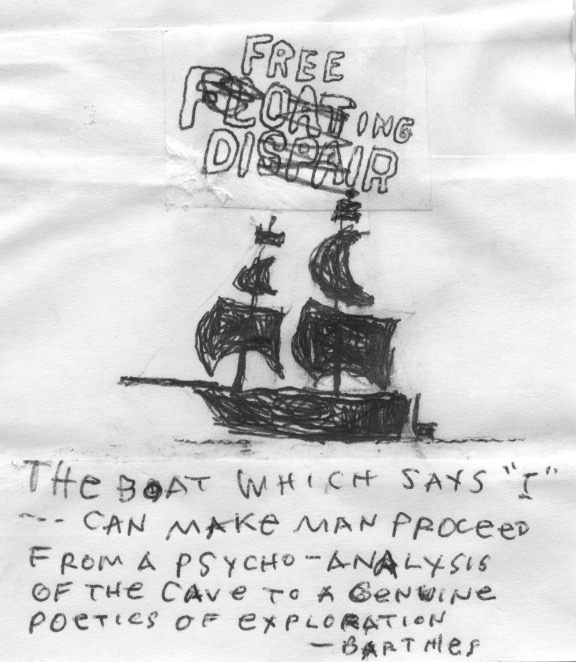 FREE
FLOATING
DISPAIR
THE BOAT WHICH SAYS "I"
--- CAN MAKE MAN PROCEED
FROM A PSYCHO-ANALYSIS
OF THE CAVE TO A GENUINE
POETICS OF EXPLORATION
- BARTHES